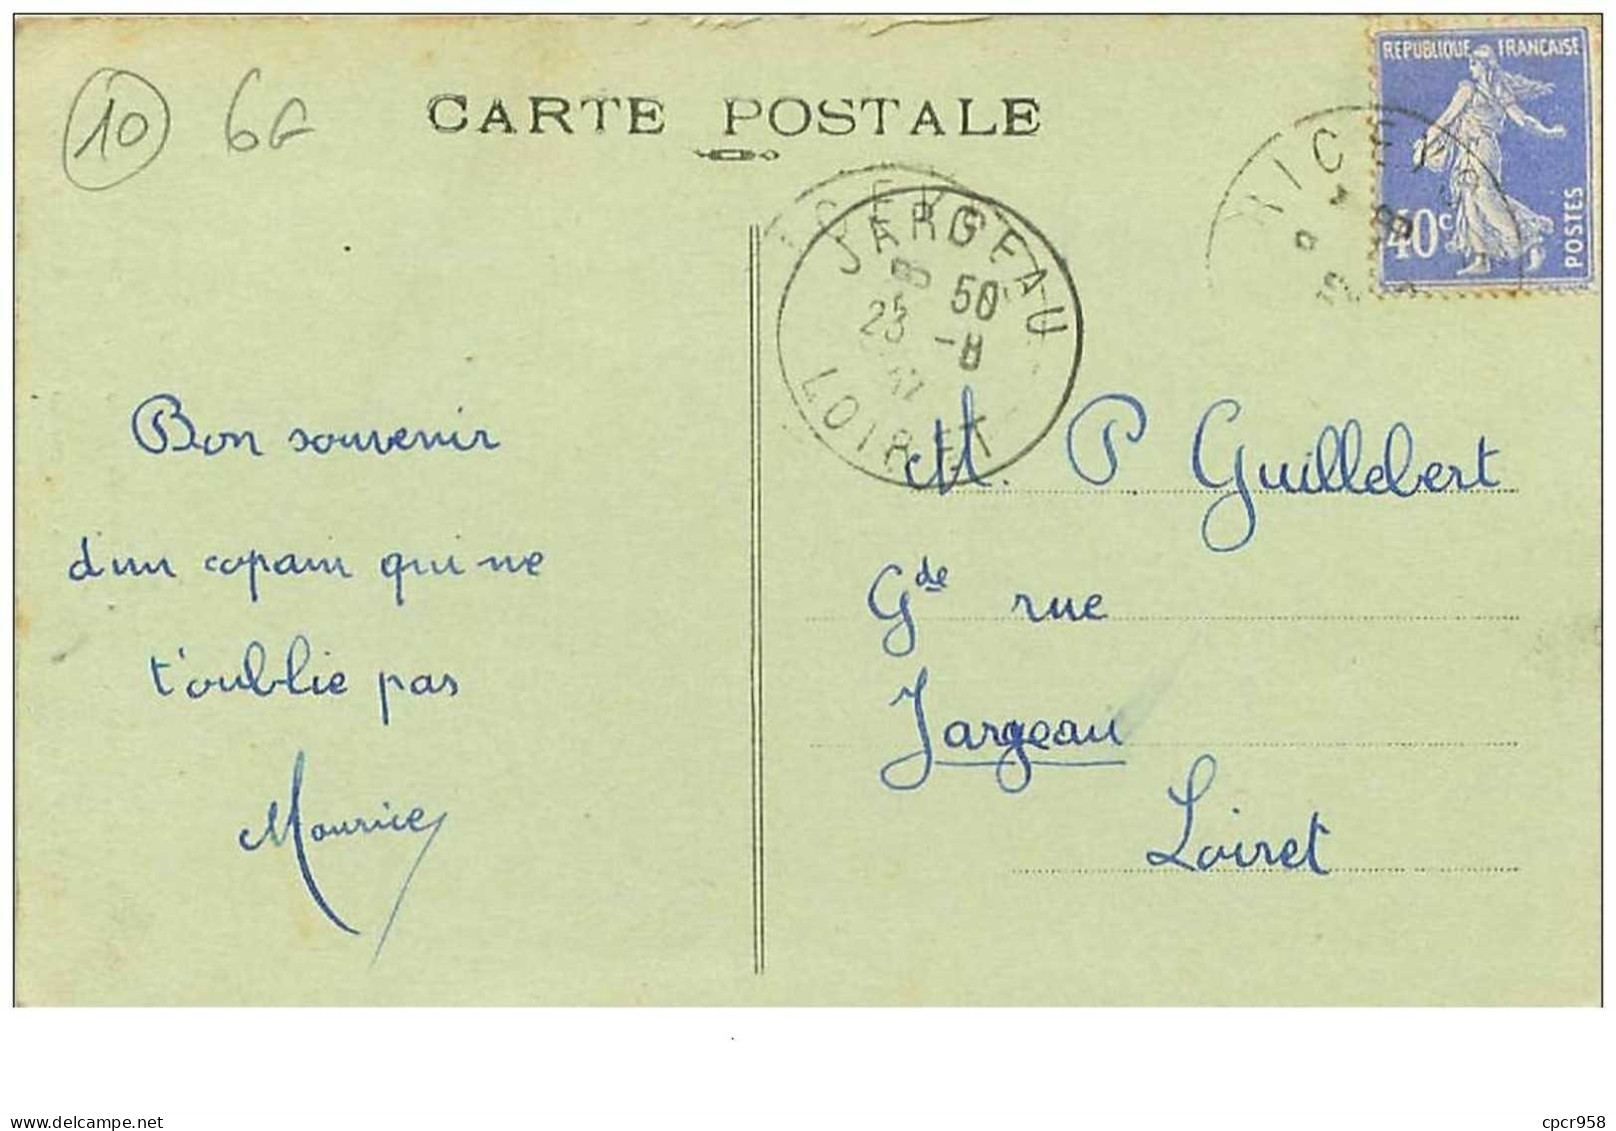 10 6G
CARTE POSTALE
REPUBLIQUE FRANCAISE
40c
POSTES
JARGEAU
8 50
23 -8
LOIRET
Bon souvenir
d'un copain qui ne
t'oublie pas
Maurice
M. P Guillebert
Gde rue
Jargeau
Loiret
www.delcampe.net
cpcr958